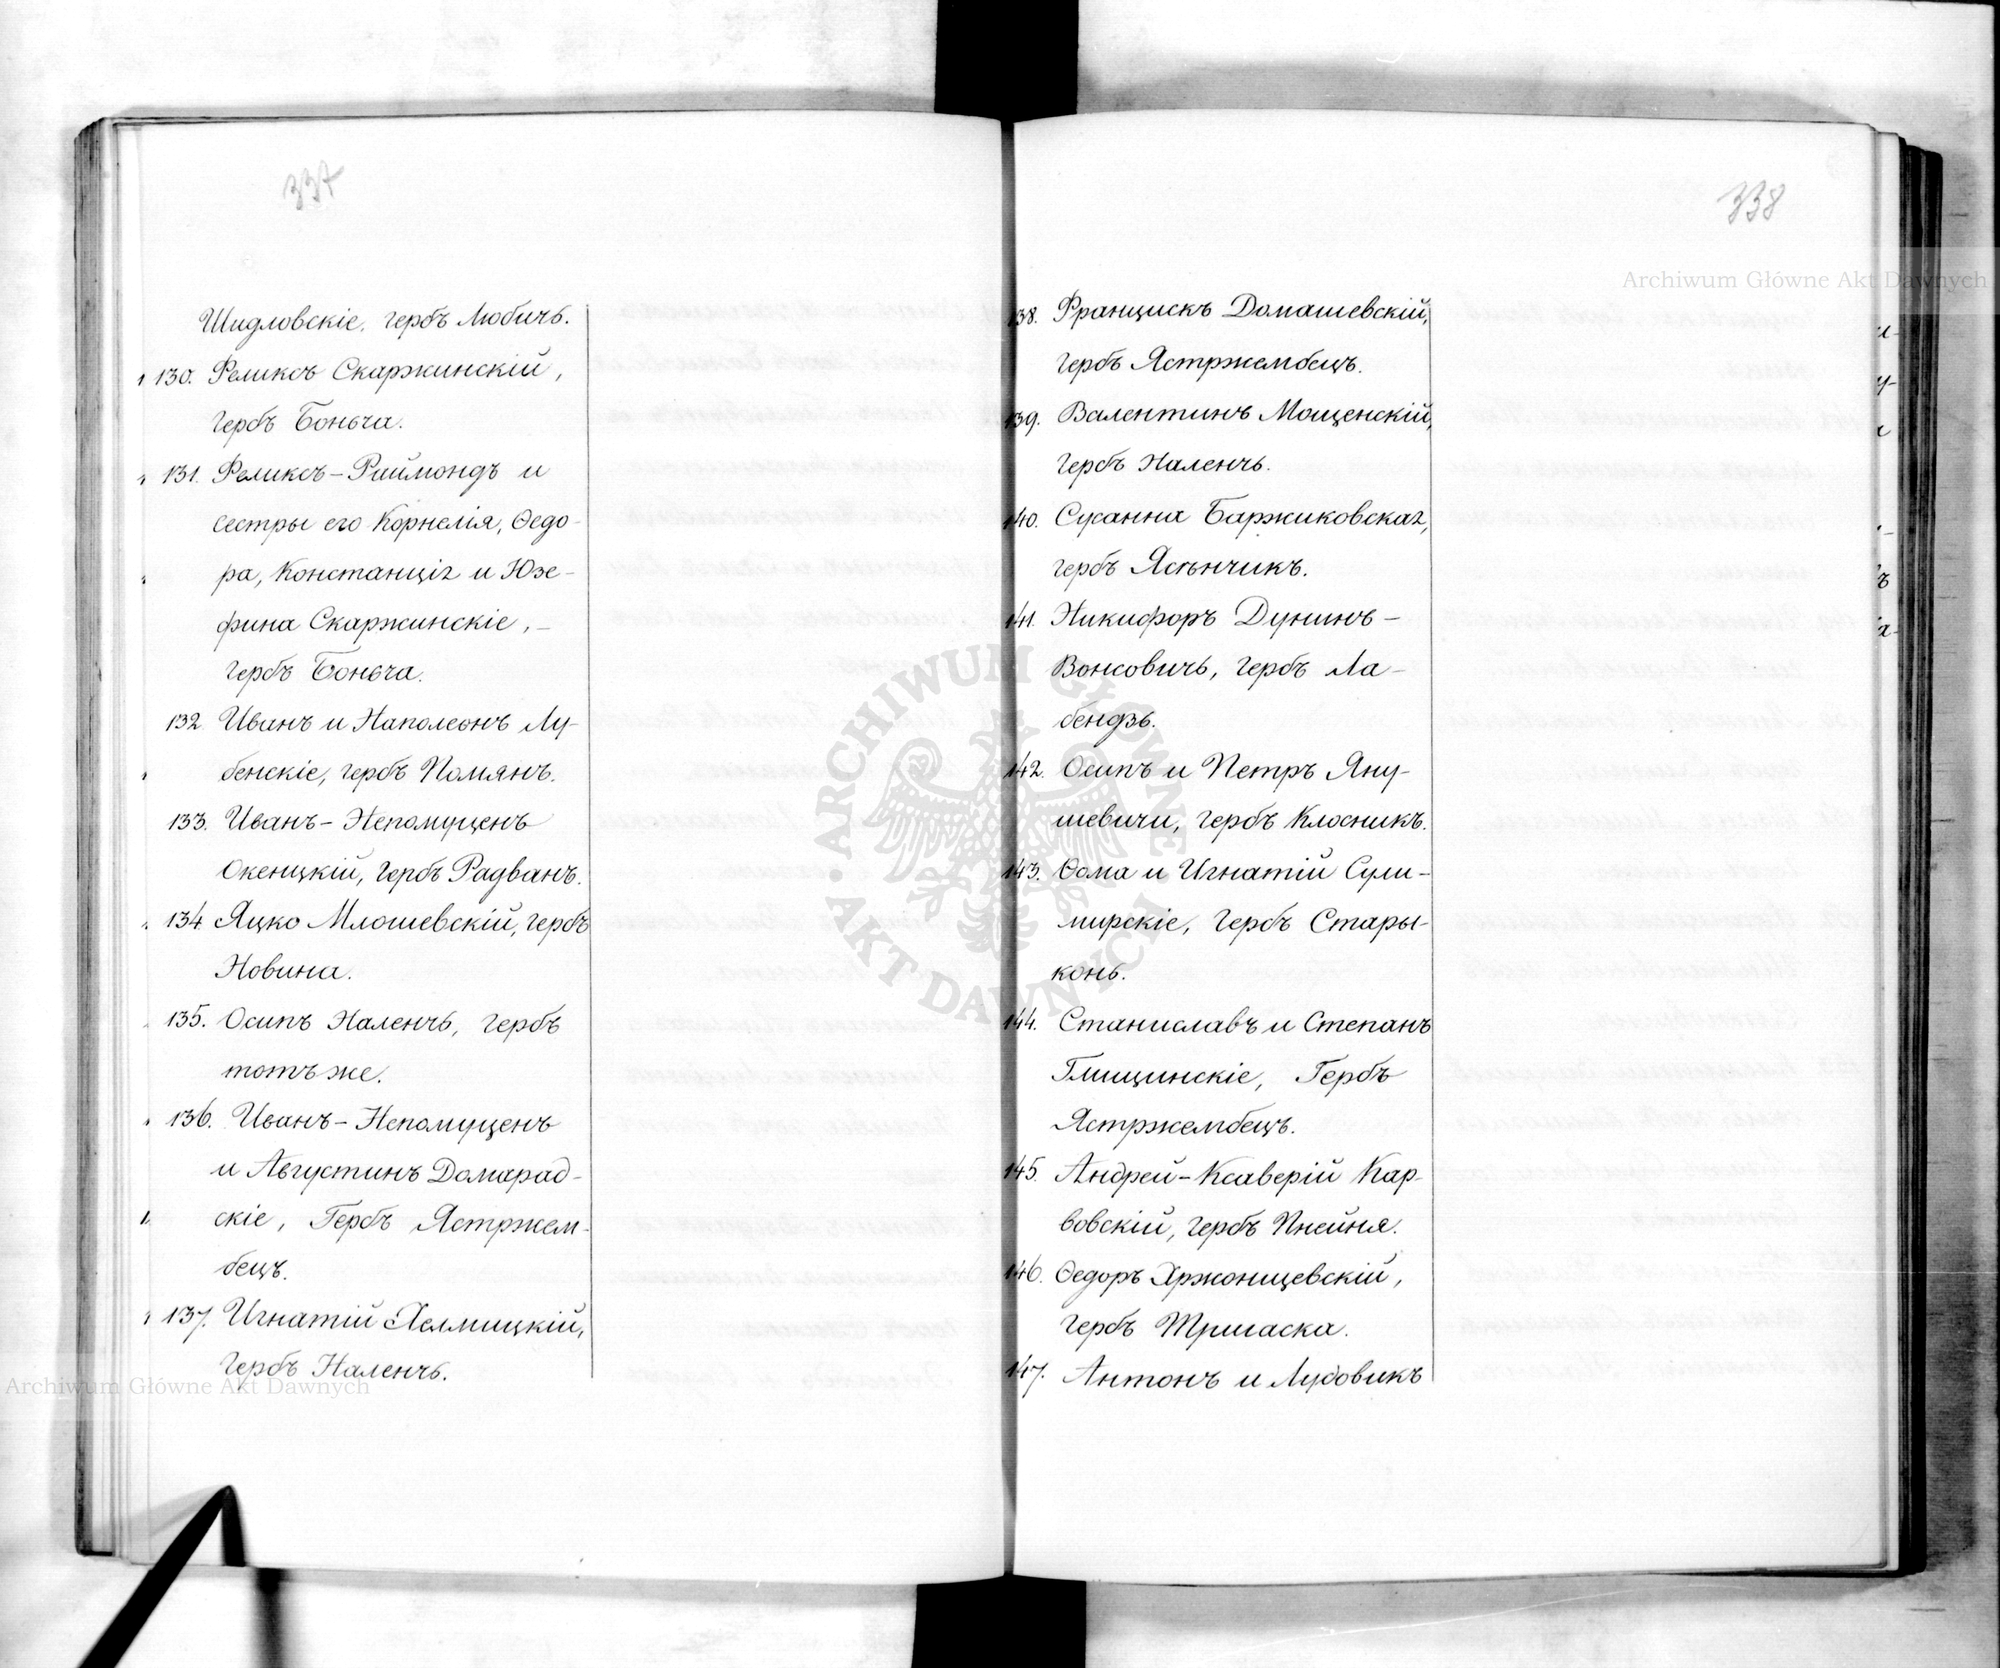 337
Шидловскіе, гербъ Любичъ.
130. Феликсъ Скаржинскій,
гербъ Боньча.
131. Феликсъ-Раймондъ и
сестры его Корнелія, Ѳедо-
ра, Констанція и Юзе-
фина Скаржинскіе, –
гербъ Боньча.
132 Иванъ и Наполеонъ Лу-
бенскіе, гербъ Помянъ.
133. Иванъ-Непомуценъ
Окенцкій, гербъ Радванъ.
134 Яцко Млошевскій, гербъ
Новина.
135. Осипъ Наленчь, гербъ
тотъ же.
136. Иванъ-Непомуценъ
и Августинъ Домарад-
скіе, Гербъ Ястржем-
бецъ.
137. Игнатій Хелмицкій,
Гербъ Наленчь.
338
138. Францискъ Домашевскій,
гербъ Ястржембецъ.
139. Валентинъ Мощенскій,
гербъ Наленчь.
140. Сусанна Баржиковская,
гербъ Ясѣнчикъ.
141. Никифоръ Дунинъ-
Вонсовичъ, гербъ Ла-
бендзь.
142. Осипъ и Петръ Яну-
шевичи, гербъ Клосникъ.
143. Ѳома и Игнатій Сули-
мирскіе, Гербъ Стары-
конь.
144. Станиславъ и Степанъ
Глищинскіе, Гербъ
Ястржембецъ.
145. Андрей-Ксаверій Кар-
вовскій, гербъ Пнейня.
146. Ѳедоръ Хржонщевскій,
гербъ Тршаска.
147. Антонъ и Лудовикъ
Archiwum Główne Akt Dawnych
Archiwum Główne Akt Dawnych
ARCHIWUM GŁÓWNE · AKT DAWNYCH ·